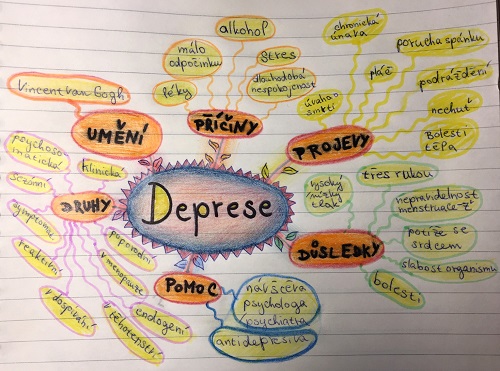 Deprese
UMĚNÍ
Vincent van Gogh
PŘÍČINY
léky
málo
odpočinku
alkohol
stres
dlouhodobá
nespokojenost
PROJEVY
úvaha o
smrti
chronická
únava
pláč
porucha spánku
podráždění
nechuť
Bolesti
těla
DŮSLEDKY
vysoký
nízký
tlak
třes rukou
nepravidelnost
menstruace
potíže se
srdcem
slabost organismu
bolesti
POMOC
návštěva
psychologa
psychiatra
antidepresiva
DRUHY
psychoso-
matická
klinická
sezónní
symptomy
reaktivní
v dospívání
v těhotenství
endogenní
v menopauze
poporodní